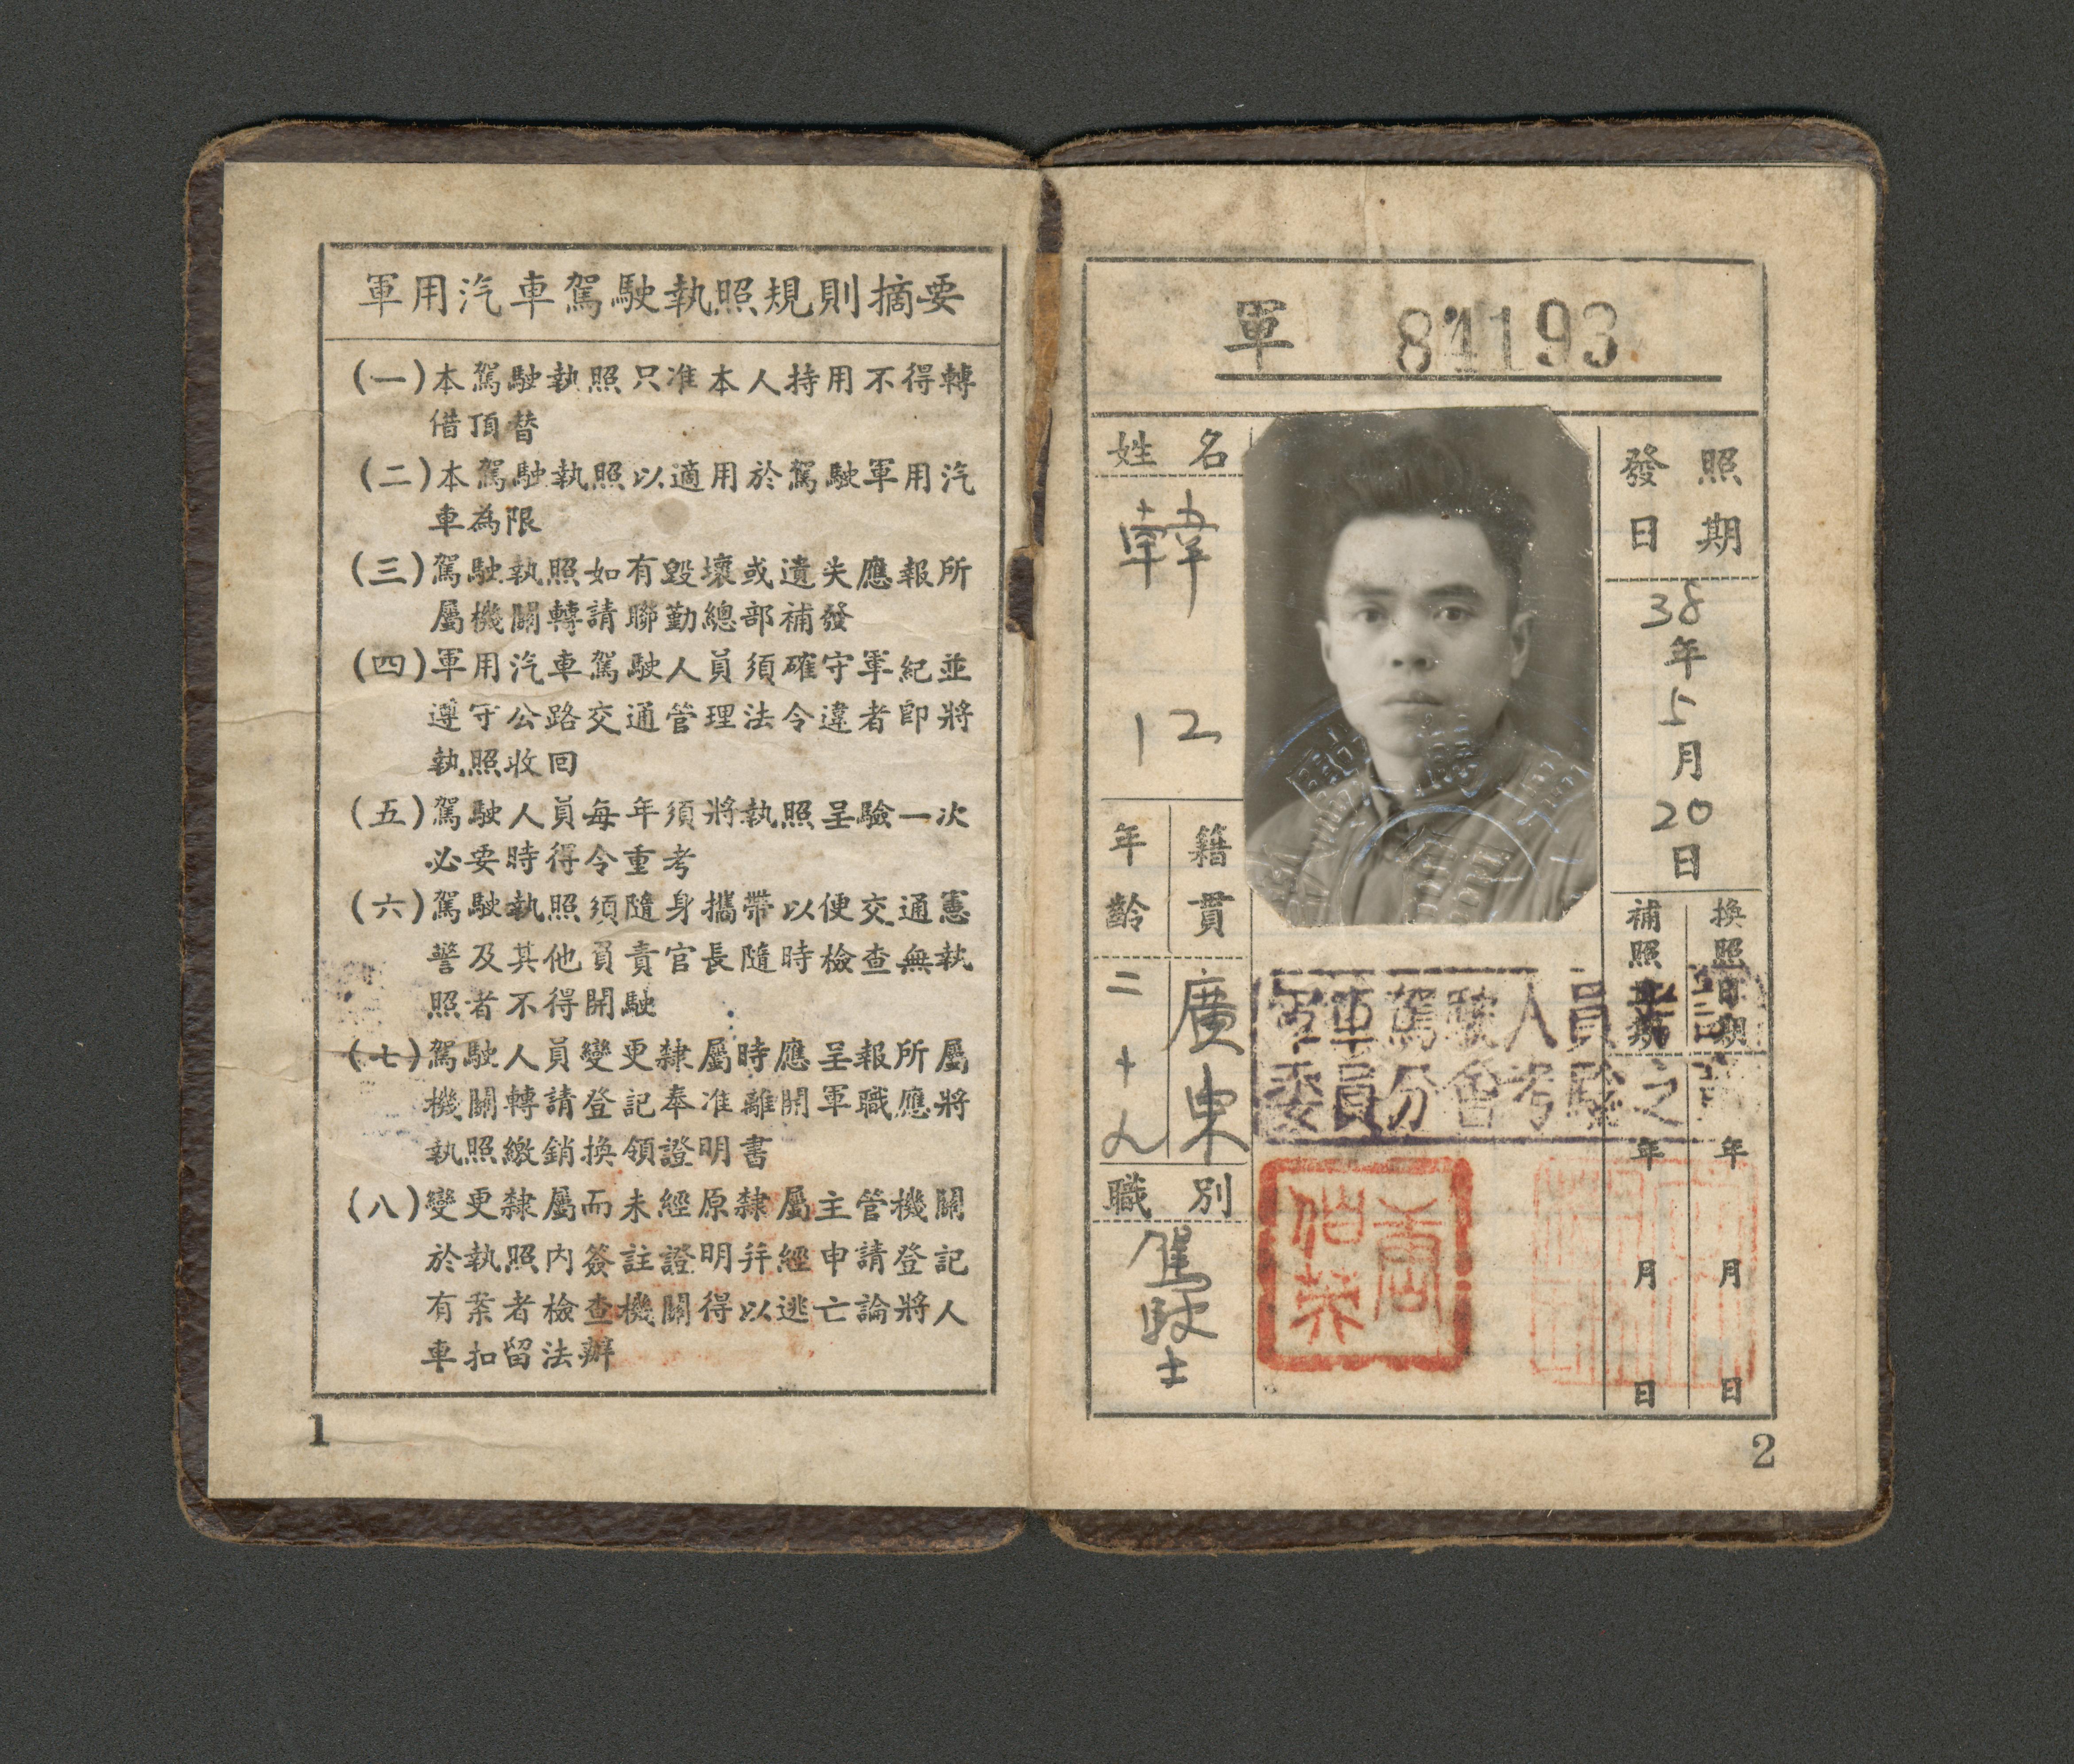 軍用汽車駕駛執照規則摘要
(一)本駕駛執照只准本人持用不得轉
借頂替
(二)本駕駛執照以適用於駕駛軍用汽
車為限
(三)駕駛執照如有毀壞或遺失應報所
屬機關轉請聯勤總部補發
(四)軍用汽車駕駛人員須確守軍紀並
遵守公路交通管理法令違者即將
執照收回
(五)駕駛人員每年須將執照呈驗一次
必要時得令重考
(六)駕駛執照須隨身攜帶以便交通憲
警及其他負責官長隨時檢查無執
照者不得開駛
(七)駕駛人員變更隸屬時應呈報所屬
機關轉請登記奉准離開軍職應將
執照繳銷換領證明書
(八)變更隸屬而未經原隸屬主管機關
於執照內簽註證明幷經申請登記
有案者檢查機關得以逃亡論將人
車扣留法辦
1
軍 84193
姓名
韓
年齡
二十八
籍貫
廣東
職別
駕駛士
軍駕駛人員考
委員分會考驗之
發照日期
38
年
5
月
20
日
補照日期
年
月
日
換照日期
年
月
日
2